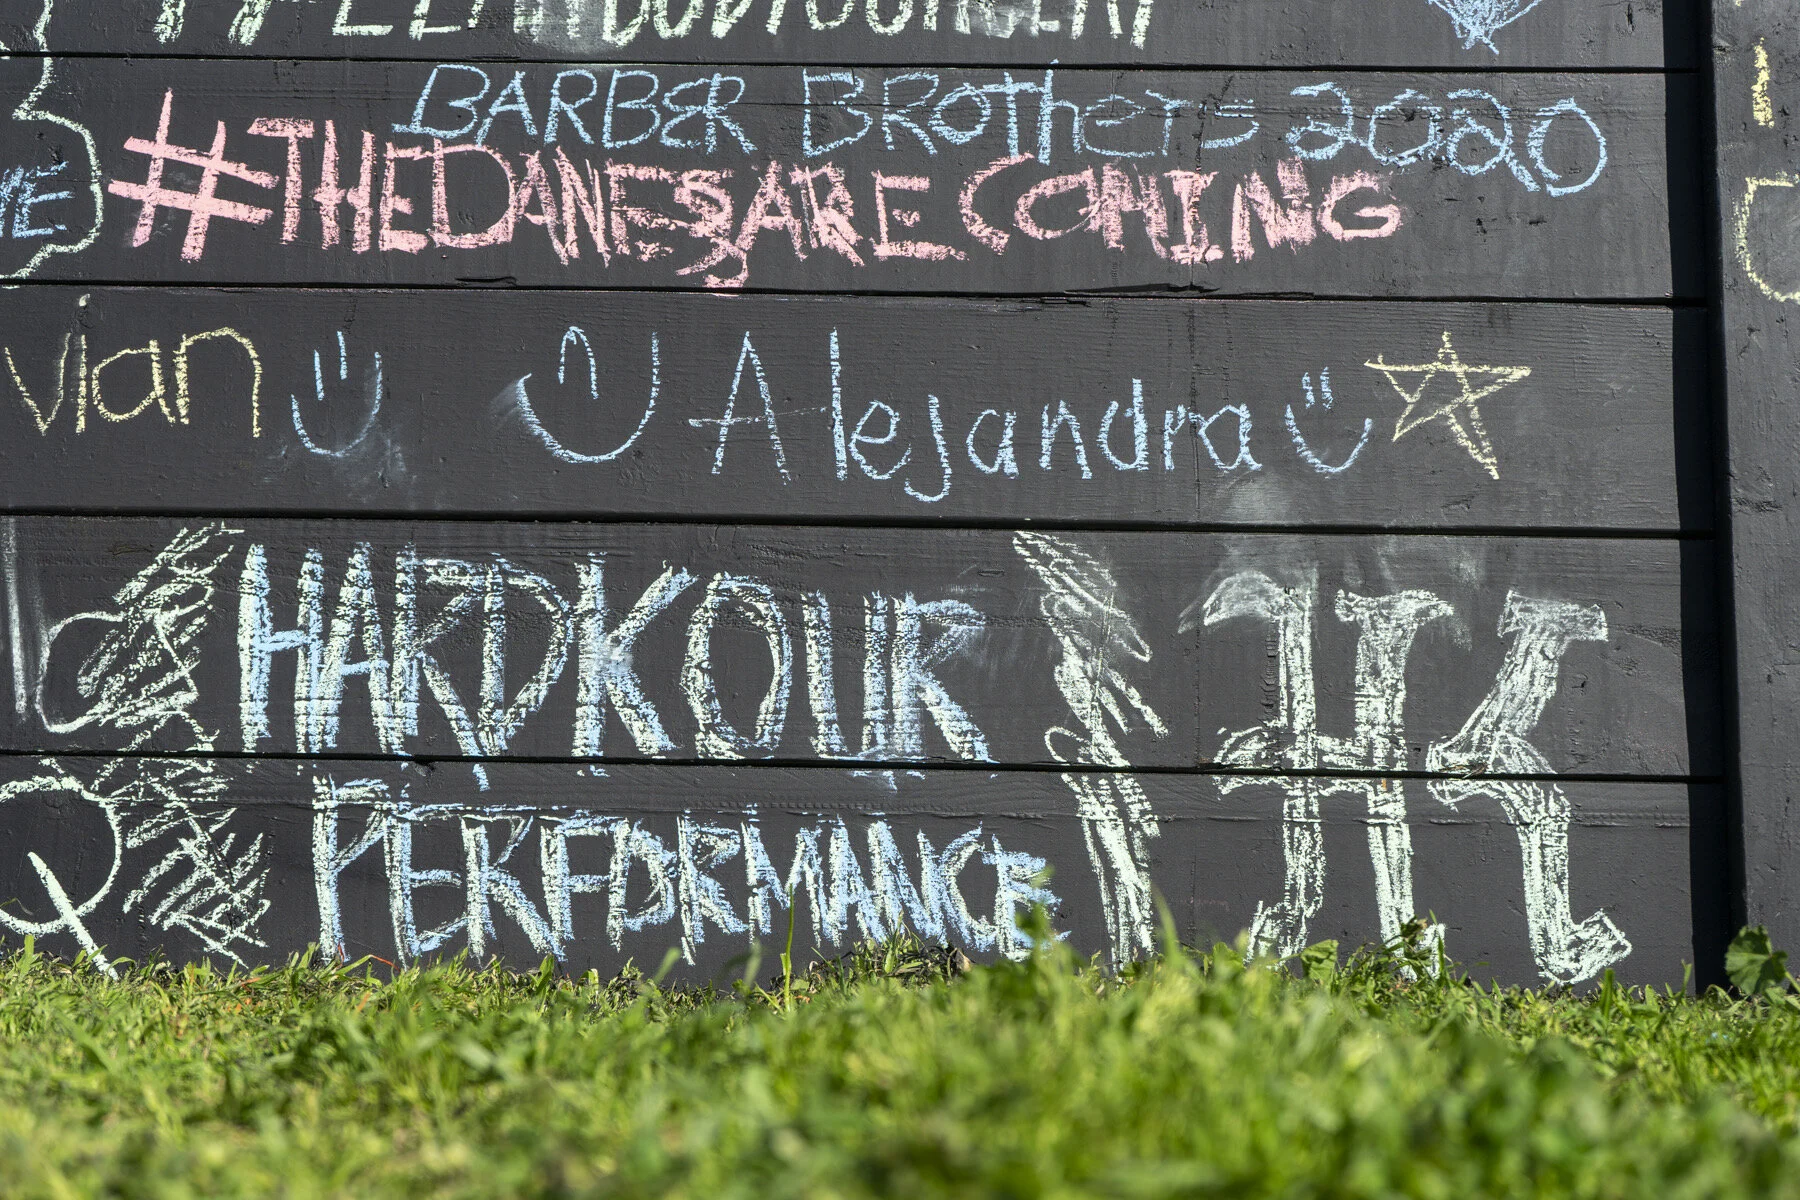 BARBER BrOthers 2020
#THEDANESARECOMING
vian
Alejandra
HARDKOUR HK
PERFORMANCE